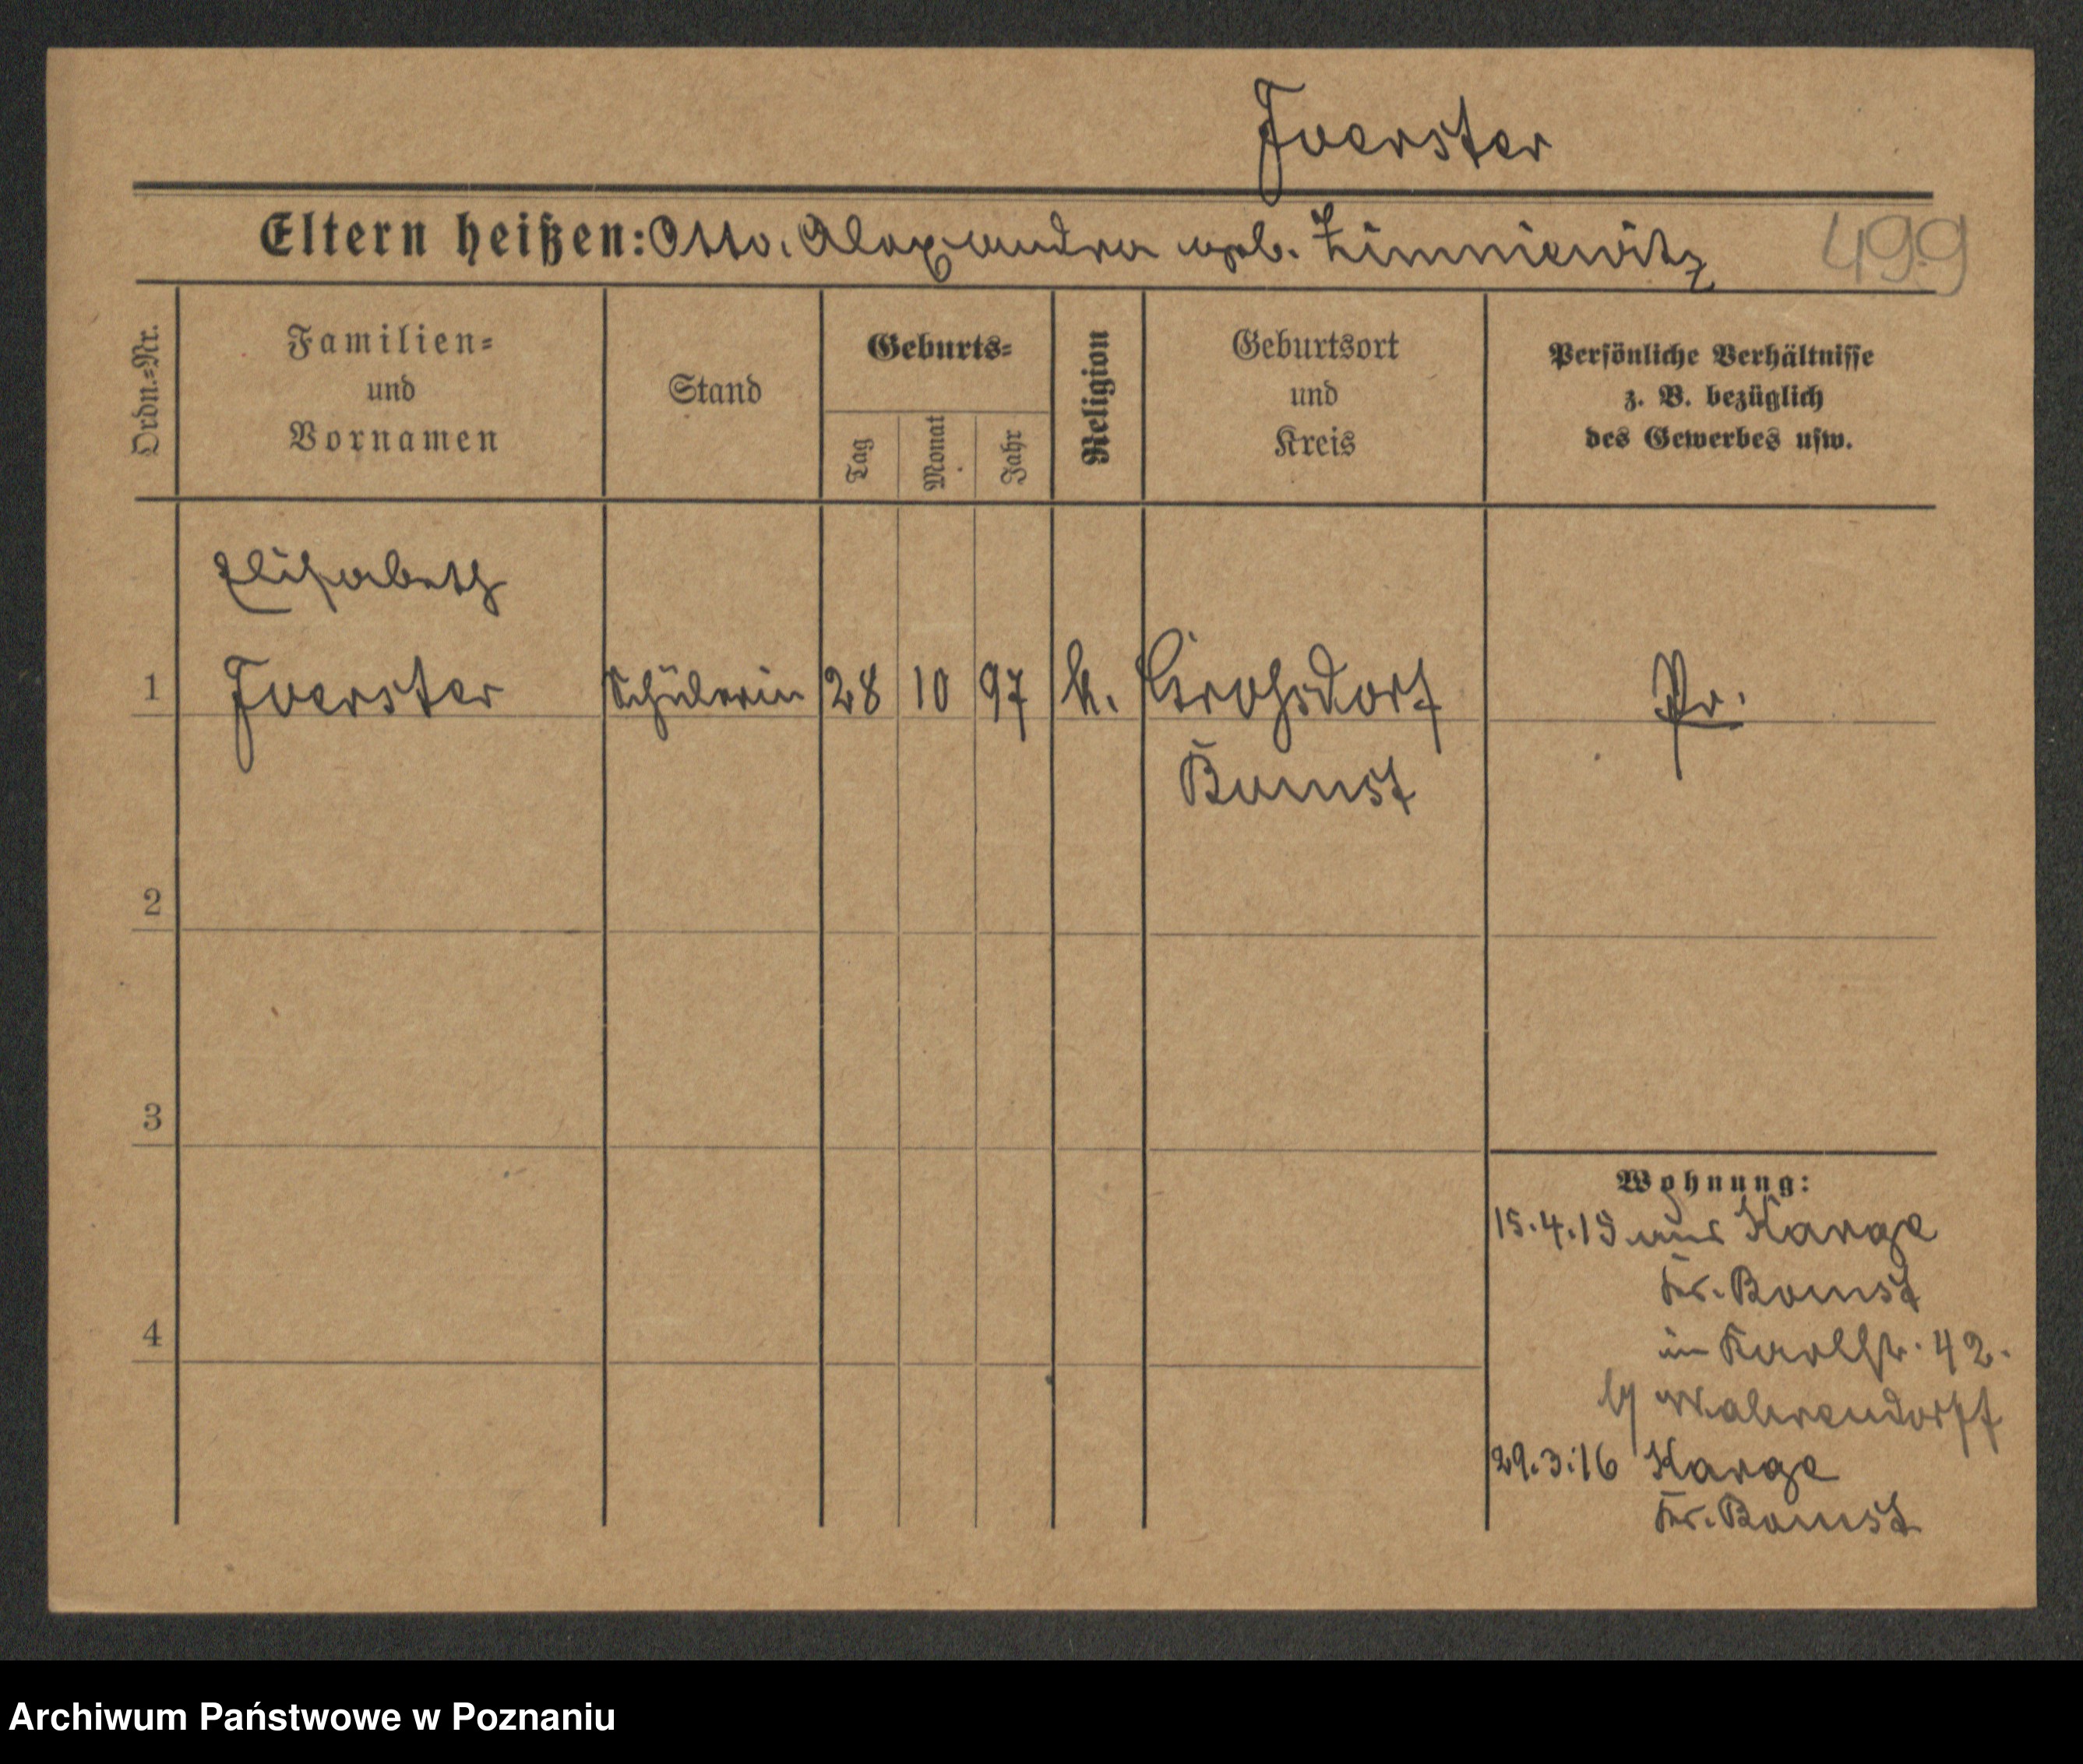 Foerster
Eltern heißen: Otto. Alexandra geb. Zimniewitz
499
Ordn.=Nr.
Familien=
und
Vornamen
Stand
Geburts=
Tag
Monat
Jahr
Religion
Geburtsort
und
Kreis
Persönliche Verhältnisse
z. B. bezüglich
des Gewerbes usw.
Elisabeth
1 Foerster Schülerin 28 10 97 k. Grohsdorf Pr.
Bomst
2
3
4
Wohnung:
15.4.15 aus Karge
Kr. Bomst
in Karlstr. 42.
b/ Wahrendorff
29.3.16 Karge
Kr. Bomst
Archiwum Państwowe w Poznaniu